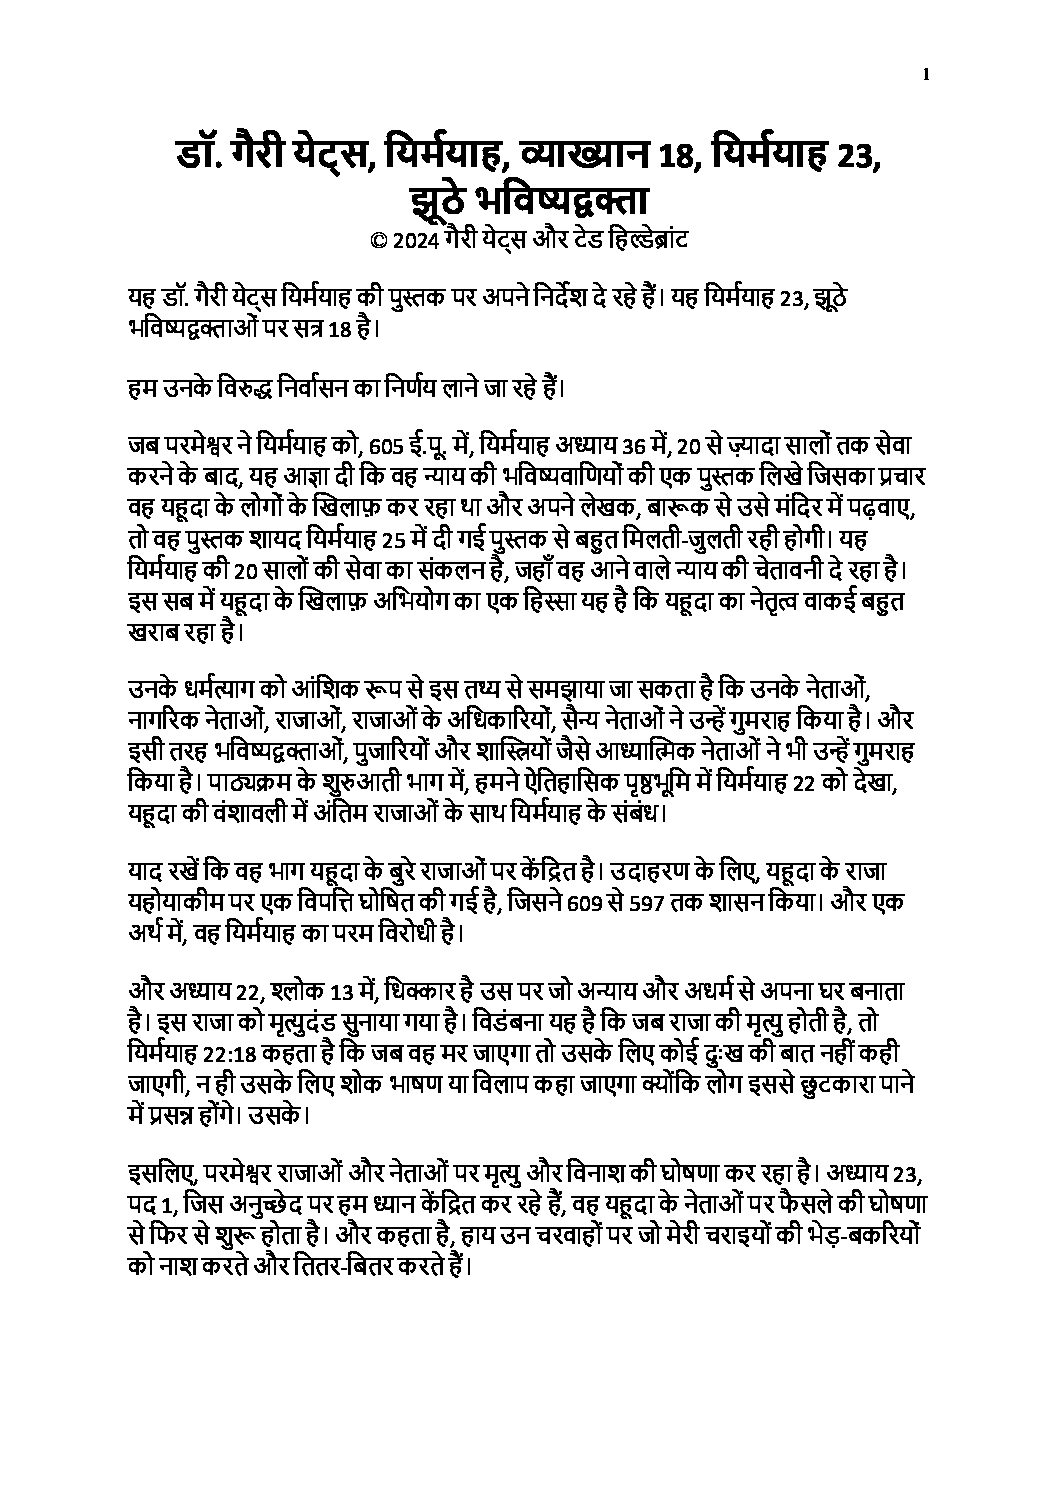 1
डॉ. गैरी येट्स, यिर्मयाह, व्याख्यान 18, यिर्मयाह 23,
झूठे भविष्यद्वक्ता
© 2024 गैरी येट्स और टेड हिल्डेब्रांट
यह डॉ. गैरी येट्स यिर्मयाह की पुस्तक पर अपने निर्देश दे रहे हैं। यह यिर्मयाह 23, झूठे
भविष्यद्वक्ताओं पर सत्र 18 है।
हम उनके विरुद्ध निर्वासन का निर्णय लाने जा रहे हैं।
जब परमेश्वर ने यिर्मयाह को, 605 ई.पू. में, यिर्मयाह अध्याय 36 में, 20 से ज़्यादा सालों तक सेवा
करने के बाद, यह आज्ञा दी कि वह न्याय की भविष्यवाणियों की एक पुस्तक लिखे जिसका प्रचार
वह यहूदा के लोगों के खिलाफ़ कर रहा था और अपने लेखक, बारूक से उसे मंदिर में पढ़वाए,
तो वह पुस्तक शायद यिर्मयाह 25 में दी गई पुस्तक से बहुत मिलती-जुलती रही होगी। यह
यिर्मयाह की 20 सालों की सेवा का संकलन है, जहाँ वह आने वाले न्याय की चेतावनी दे रहा है।
इस सब में यहूदा के खिलाफ़ अभियोग का एक हिस्सा यह है कि यहूदा का नेतृत्व वाकई बहुत
खराब रहा है।
उनके धर्मत्याग को आंशिक रूप से इस तथ्य से समझाया जा सकता है कि उनके नेताओं,
नागरिक नेताओं, राजाओं, राजाओं के अधिकारियों, सैन्य नेताओं ने उन्हें गुमराह किया है। और
इसी तरह भविष्यद्वक्ताओं, पुजारियों और शास्त्रियों जैसे आध्यात्मिक नेताओं ने भी उन्हें गुमराह
किया है। पाठ्यक्रम के शुरुआती भाग में, हमने ऐतिहासिक पृष्ठभूमि में यिर्मयाह 22 को देखा,
यहूदा की वंशावली में अंतिम राजाओं के साथ यिर्मयाह के संबंध।
याद रखें कि वह भाग यहूदा के बुरे राजाओं पर केंद्रित है। उदाहरण के लिए, यहूदा के राजा
यहोयाकीम पर एक विपत्ति घोषित की गई है, जिसने 609 से 597 तक शासन किया। और एक
अर्थ में, वह यिर्मयाह का परम विरोधी है।
और अध्याय 22, श्लोक 13 में, धिक्कार है उस पर जो अन्याय और अधर्म से अपना घर बनाता
है। इस राजा को मृत्युदंड सुनाया गया है। विडंबना यह है कि जब राजा की मृत्यु होती है, तो
यिर्मयाह 22:18 कहता है कि जब वह मर जाएगा तो उसके लिए कोई दुःख की बात नहीं कही
जाएगी, न ही उसके लिए शोक भाषण या विलाप कहा जाएगा क्योंकि लोग इससे छुटकारा पाने
में प्रसन्न होंगे। उसके।
इसलिए, परमेश्वर राजाओं और नेताओं पर मृत्यु और विनाश की घोषणा कर रहा है। अध्याय 23,
पद 1, जिस अनुच्छेद पर हम ध्यान केंद्रित कर रहे हैं, वह यहूदा के नेताओं पर फैसले की घोषणा
से फिर से शुरू होता है। और कहता है, हाय उन चरवाहों पर जो मेरी चराइयों की भेड़-बकरियों
को नाश करते और तितर-बितर करते हैं।